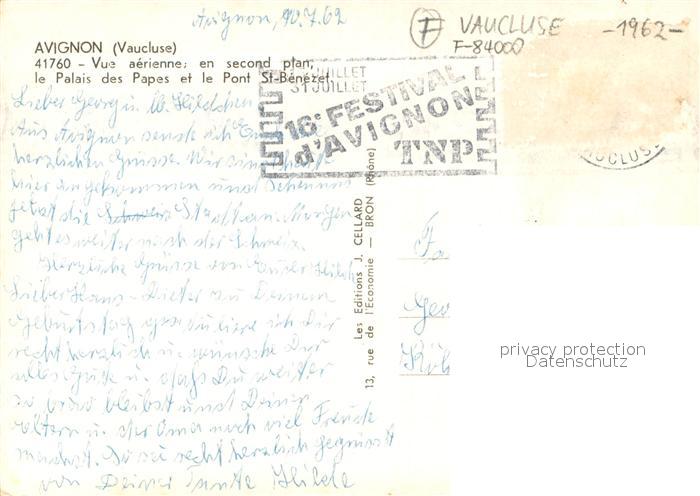 Avignon, 10.7.62
F VAUCLUSE -1962-
F-84000
AVIGNON (Vaucluse)
41760 - Vue aérienne; en second plan,
le Palais des Papes et le Pont St-Bénézet.
JUILLET
31 JUILLET
16e FESTIVAL
d'AVIGNON
TNP
VAUCLUSE
Lieber Georg u. Hildchen
Aus Avignon sende ich Euch
herzlichen Grüsse. Wir sind
hier angekommen und schauen
jetzt die Stadt an. Morgen
geht es weiter nach der Schweiz.
Herzliche Grüsse von Eurer Hilde
Lieber Hans-Dieter zu Deinem
Geburtstag gratuliere ich Dir
recht herzlich u. wünsche Dir
alles Gute u. dass Du weiter
so brav bleibst und Deinen
Eltern u. der Oma noch viel Freude
machst. So sei recht herzlich gegrüsst
von Deiner Tante Hilde
Les Editions J. CELLARD
13, rue de l'Economie — BRON (Rhône)
Fa
Geo
Köl
privacy protection
Datenschutz